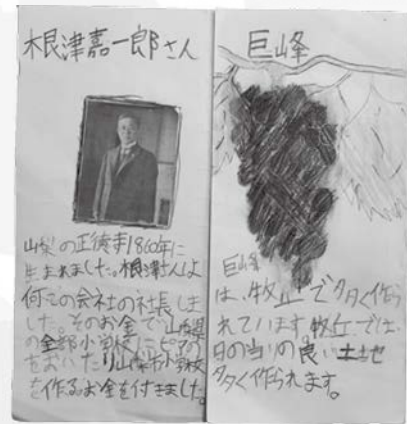 根津嘉一郎さん
山梨の正徳寺1860年に
生まれました。根津さんは
何この会社の社長しま
した。そのお金で山梨県
の全部小学校にピアノ
をおいたり山梨市小学校
を作るお金を付きました。
巨峰
巨峰
は、牧丘で多く作ら
れています。牧丘では、
日の当りの良い土地
多く作られます。